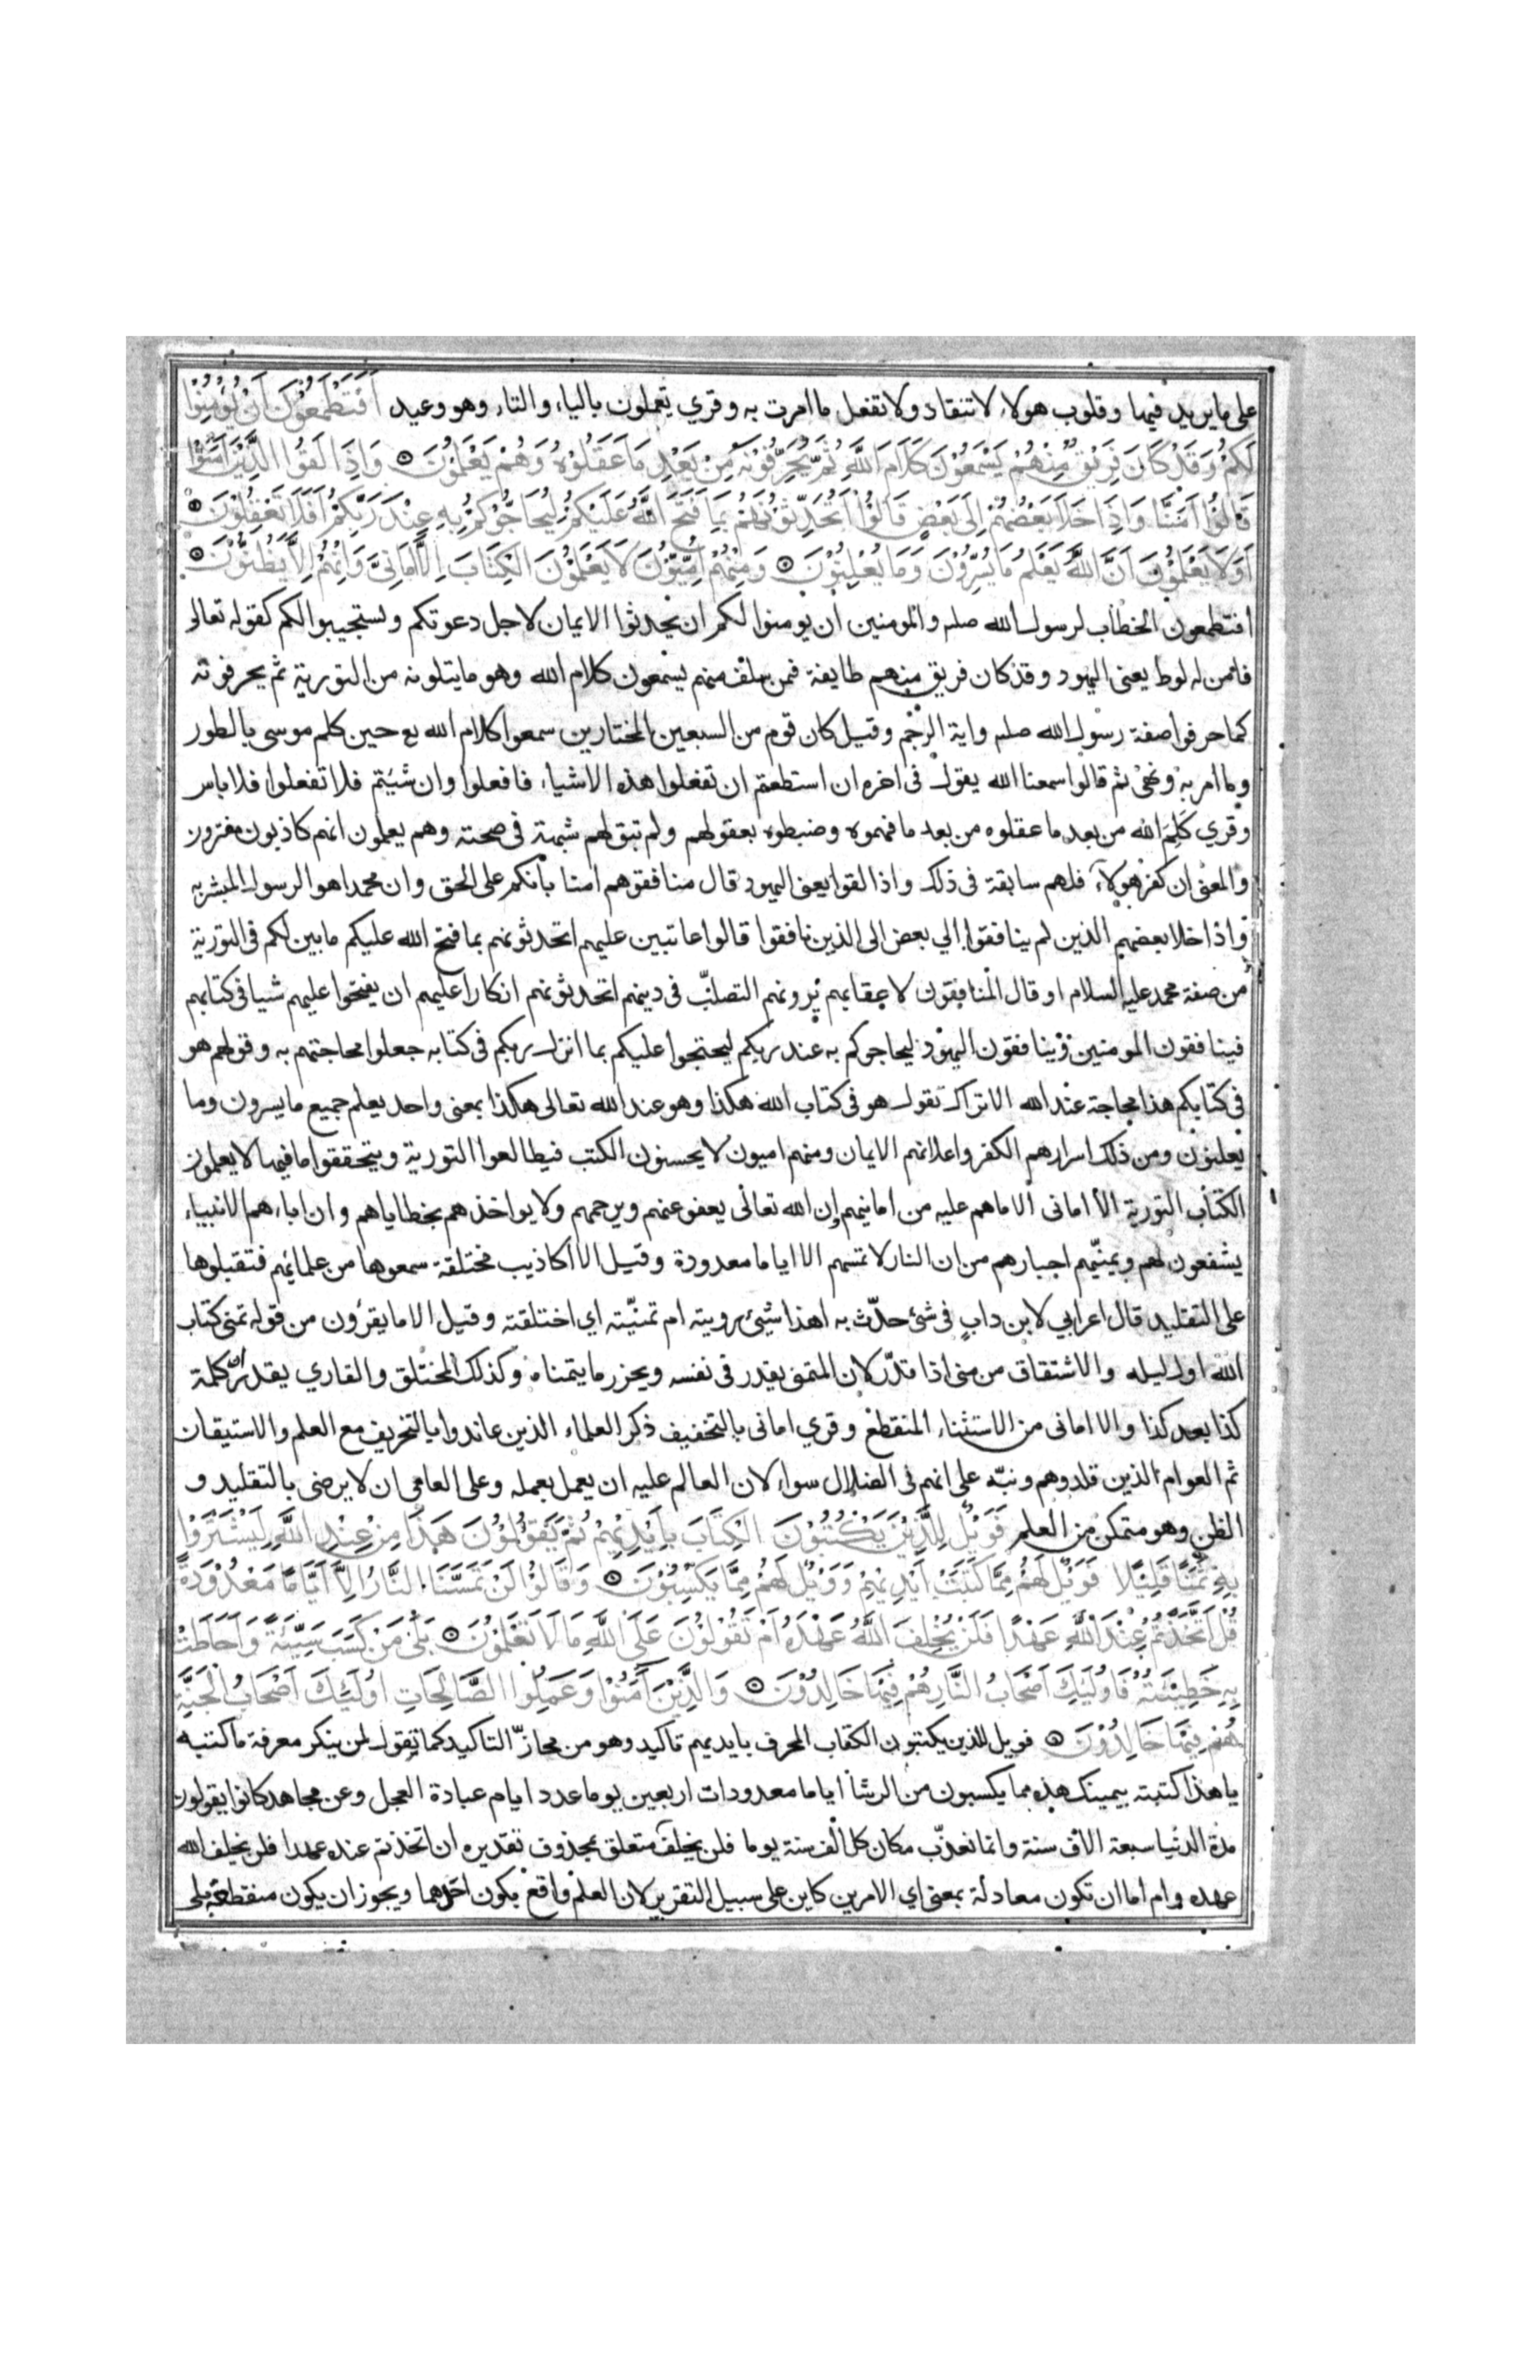 على ما يريد فيها وقلوب هولاء لا تنقاد ولا تفعل ما امرت به وقري يعملون بالياء والتاء وهو وعيد اَفَتَطْمَعُوْنَ اَنْ يُؤْمِنُوْا
لَكُمْ وَقَدْ كَانَ فَرِيْقٌ مِنْهُمْ يَسْمَعُوْنَ كَلَامَ اللَّهِ ثُمَّ يُحَرِّفُوْنَهُ مِنْ بَعْدِ مَا عَقَلُوْهُ وَهُمْ يَعْلَمُوْنَ وَاِذَا لَقُوا الَّذِيْنَ آمَنُوْا
قَالُوْا آمَنَّا وَاِذَا خَلَا بَعْضُهُمْ اِلَى بَعْضٍ قَالُوْا اَتُحَدِّثُوْنَهُمْ بِمَا فَتَحَ اللَّهُ عَلَيْكُمْ لِيُحَاجُّوْكُمْ بِهِ عِنْدَ رَبِّكُمْ اَفَلَا تَعْقِلُوْنَ
اَوَلَا يَعْلَمُوْنَ اَنَّ اللَّهَ يَعْلَمُ مَا يُسِرُّوْنَ وَمَا يُعْلِنُوْنَ وَمِنْهُمْ اُمِّيُّوْنَ لَا يَعْلَمُوْنَ الْكِتَابَ اِلَّا اَمَانِيَّ وَاِنْ هُمْ اِلَّا يَظُنُّوْنَ
افتطمعون الخطاب لرسول الله صلم والمومنين ان يومنوا لكم ان يحدثوا الايمان لاجل دعوتكم ويستجيبوا لكم كقوله تعالى
فامن له لوط يعنى اليهود وقد كان فريق منهم طايفة فمن سلف منهم يسمعون كلام الله وهو ما يتلونه من التورية ثم يحرفونه
كما حرفوا صفة رسول الله صلم واية الرجم وقيل كان قوم من السبعين المختارين سمعوا كلام الله تع حين كلم موسى بالطور
وما امر به ونهى ثم قالوا سمعنا الله يقول فى اخره ان استطعتم ان تفعلوا هذه الاشياء فافعلوا وان شئتم فلا تفعلوا فلا باس
وقري كَلِمَ الله من بعد ما عقلوه من بعد ما فهموه وضبطوه بعقولهم ولم تبق لهم شبهة فى صحته وهم يعلمون انهم كاذبون مفترون
والمعنى ان كفر هولآء فلهم سابقة فى ذلك واذا لقوا يعنى اليهود قال منافقوهم امنا بانكم على الحق وان محمدا هو الرسول المبشر به
واذا خلا بعضهم الذين لم ينافقوا الي بعض الى الذين نافقوا قالوا عاتبين عليهم اتحدثونهم بما فتح الله عليكم ما بين لكم فى التورية
من صفة محمد عليه السلام او قال المنافقون لاعقابهم يرونهم التصلّب فى دينهم اتحدثونهم انكارا عليهم ان يفتحوا عليهم شيا فى كتابهم
فينافقون المومنين وينافقون اليهود ليحاجوكم به عند ربكم ليحتجوا عليكم بما انزل ربكم فى كتابه جعلوا محاجتهم به وقولهم هو
فى كتابكم هذا محاجة عند الله الا تراك تقول هو فى كتاب الله هكذا وهو عند الله تعالى هكذا بمعنى واحد يعلم جميع ما يسرون وما
يعلنون ومن ذلك اسرارهم الكفر واعلانهم الايمان ومنهم اميون لا يحسنون الكتب فيطالعوا التورية ويتحققوا ما فيها لا يعلمون
الكتاب التورية الا امانى الا ما هم عليه من امانيهم ان الله تعالى يعفو عنهم ويرحمهم ولا يواخذهم بخطاياهم وان اباءهم الانبياء
يشفعون لهم ويمنّيهم احبارهم من ان النار لا تمسهم الا اياما معدودة وقيل الا اكاذيب مختلقة سمعوها من علمائهم فتقبلوها
على التقليد قال اعرابي لابن دابٍ فى شئ حدّث به اهذا شيئ رويته ام تمنيّته اي اختلقته وقيل الا ما يقرؤن من قوله تمنى كتاب
الله اول ليله والاشتقاق من منى اذا قدّر لان المتمنى يقدر فى نفسه ويحزر ما يتمناه وكذلك المختلق والقاري يقدر ان كلمة
كذا بعد كذا والا امانى من الاستثناء المنقطع وقري امانى بالتخفيف ذكر العلماء الذين عاندوا بالتحريف مع العلم والاستيقان
ثم العوام الذين قلدوهم ونبّه على انهم فى الضلال سواء لان العالم عليه ان يعمل بعمله وعلى العامى ان لا يرضى بالتقليد و
الظن وهو متمكن من العلم فَوَيْلٌ لِلَّذِيْنَ يَكْتُبُوْنَ الْكِتَابَ بِاَيْدِيْهِمْ ثُمَّ يَقُوْلُوْنَ هٰذَا مِنْ عِنْدِ اللَّهِ لِيَشْتَرُوْا
بِهِ ثَمَنًا قَلِيْلًا فَوَيْلٌ لَهُمْ مِمَّا كَتَبَتْ اَيْدِيْهِمْ وَوَيْلٌ لَهُمْ مِمَّا يَكْسِبُوْنَ وَقَالُوْا لَنْ تَمَسَّنَا النَّارُ اِلَّا اَيَّامًا مَعْدُوْدَةً
قُلْ اَتَّخَذْتُمْ عِنْدَ اللَّهِ عَهْدًا فَلَنْ يُخْلِفَ اللَّهُ عَهْدَهُ اَمْ تَقُوْلُوْنَ عَلَى اللَّهِ مَا لَا تَعْلَمُوْنَ بَلَى مَنْ كَسَبَ سَيِّئَةً وَاَحَاطَتْ
بِهِ خَطِيْئَتُهُ فَاُولَئِكَ اَصْحَابُ النَّارِ هُمْ فِيْهَا خَالِدُوْنَ وَالَّذِيْنَ آمَنُوْا وَعَمِلُوا الصَّالِحَاتِ اُولَئِكَ اَصْحَابُ الْجَنَّةِ
هُمْ فِيْهَا خَالِدُوْنَ فويل للذين يكتبون الكتاب المحرف بايديهم تاكيد وهو من مجازّ التاكيد كما تقول لمن ينكر معرفة ما كتبه
يا هذا كتبته بيمينك هذه مما يكسبون من الرشا اياما معدودات اربعين يوما عدد ايام عبادة العجل وعن مجاهد كانوا يقولون
مدة الدنيا سبعة الاف سنة وانما نعذّب مكان كل الف سنة يوما فلن يخلف متعلق بمحذوف تقديره ان اتخذتم عنده عهدا فلن يخلف الله
عهده وام اما ان تكون معادلة بمعنى اي الامرين كاين على سبيل التقرير لان العلم واقع بكون احدهما ويجوز ان يكون منقطعة بلى